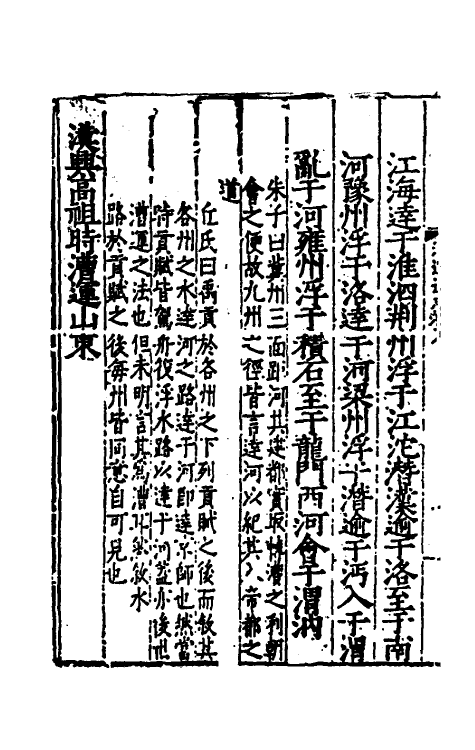 江海達于淮泗荆州浮于江沱潛漢逾于洛至于南
河豫州浮于洛達于河梁州浮于潛逾于沔入于渭
亂于河雍州浮于積石至于龍門西河會于渭汭
朱子曰冀州三面距河其建都實取轉漕之利朝
會之便故九州之徑皆言達河以紀其入帝都之
道
丘氏曰禹貢於各州之下列貢賦之後而敘其
各州之水達河之路達于河即達京師也然當
時貢賦皆駕舟復浮水路以達于河蓋亦後世
漕運之法也但未明言其爲漕耳然敘水
路於貢賦之後每州皆同意自可見也
漢興高祖時漕運山東